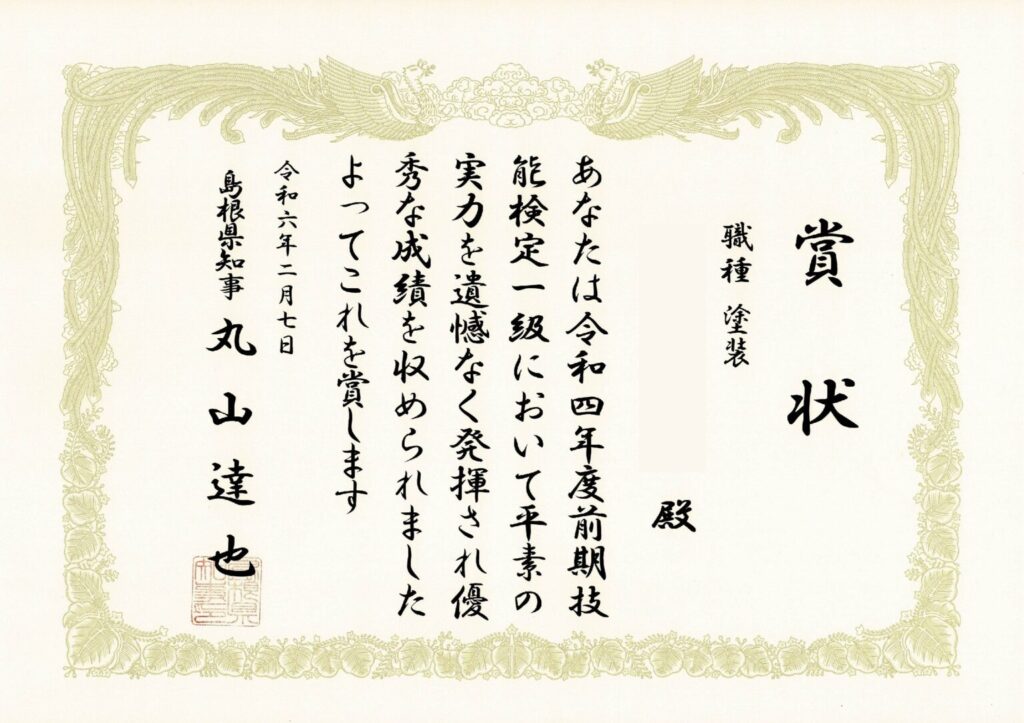 賞状
職種 塗装
殿
あなたは令和四年度前期技
能検定一級において平素の
実力を遺憾なく発揮され優
秀な成績を収められました
よってこれを賞します
令和六年二月七日
島根県知事 丸山達也